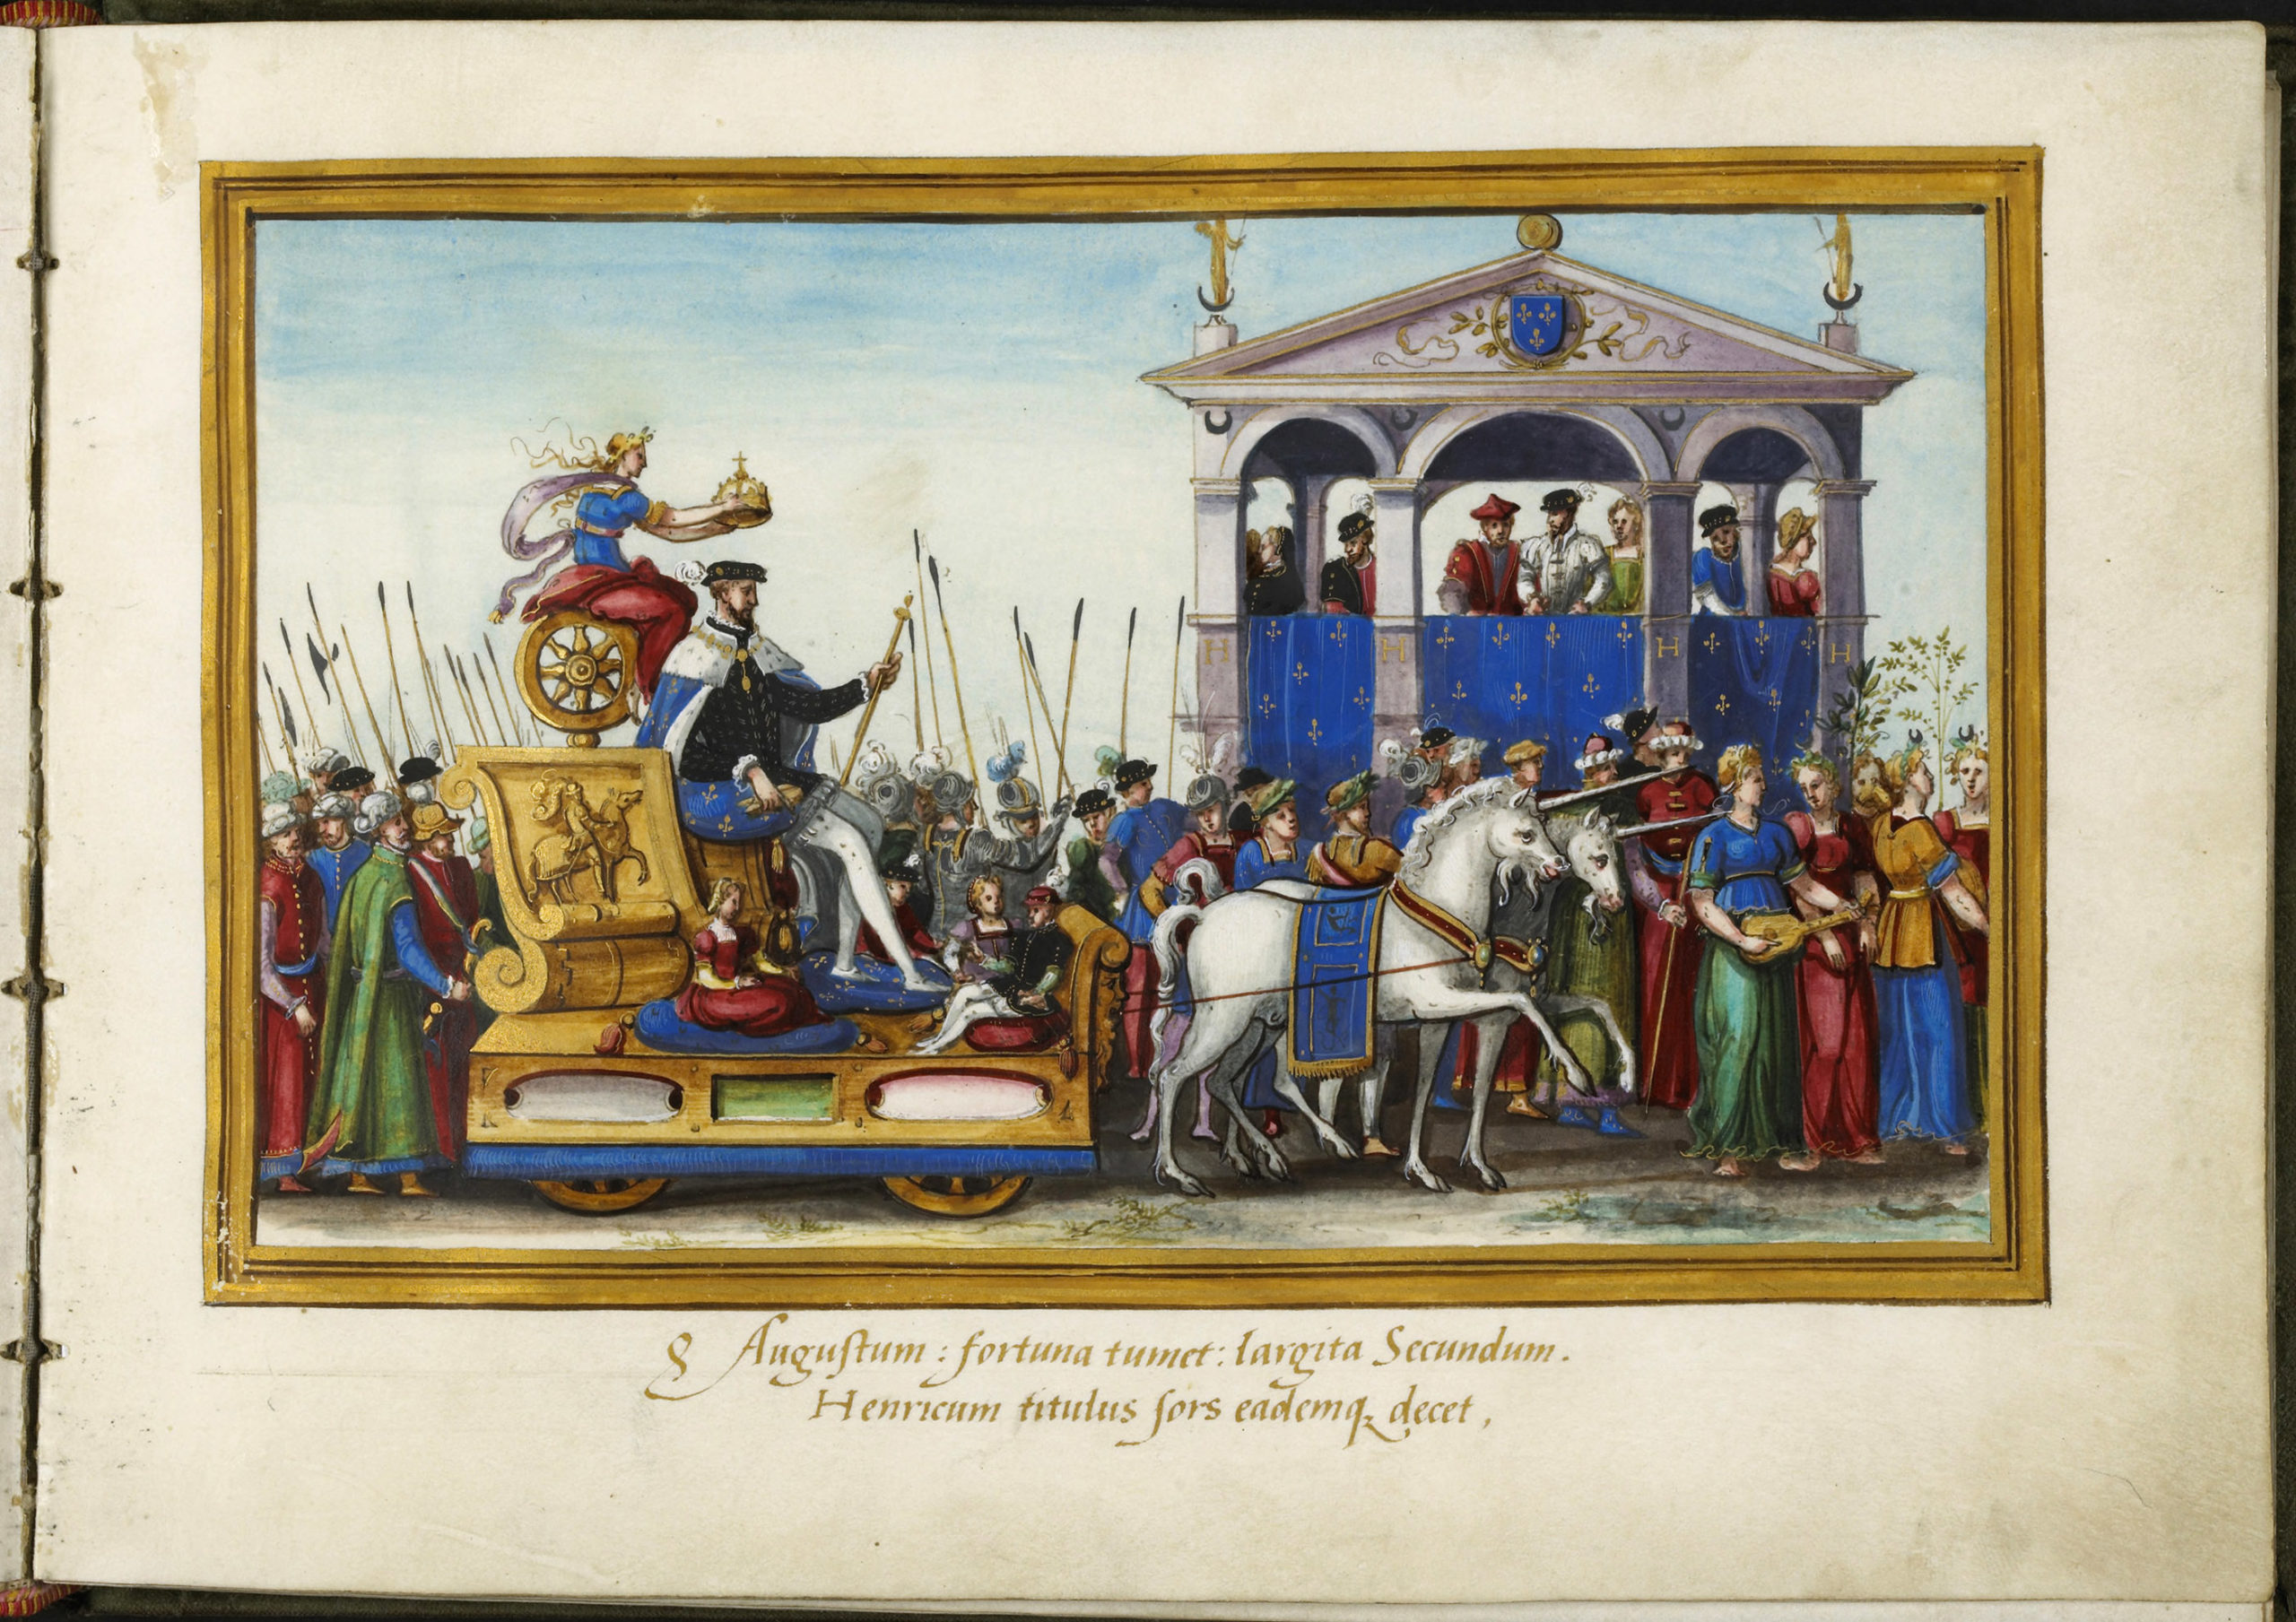 H H H H
8 Auguſtum : fortuna tumet : largita Secundum.
Henricum titulus ſors eademqꝫ decet,